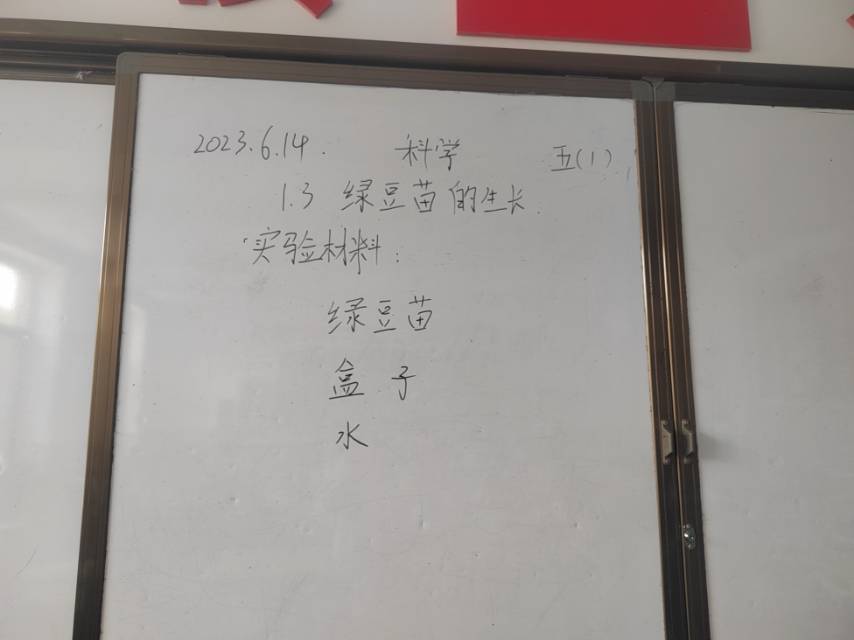 2023.6.14. 科学 五(1)
1.3 绿豆苗的生长
实验材料:
绿豆苗
盒子
水